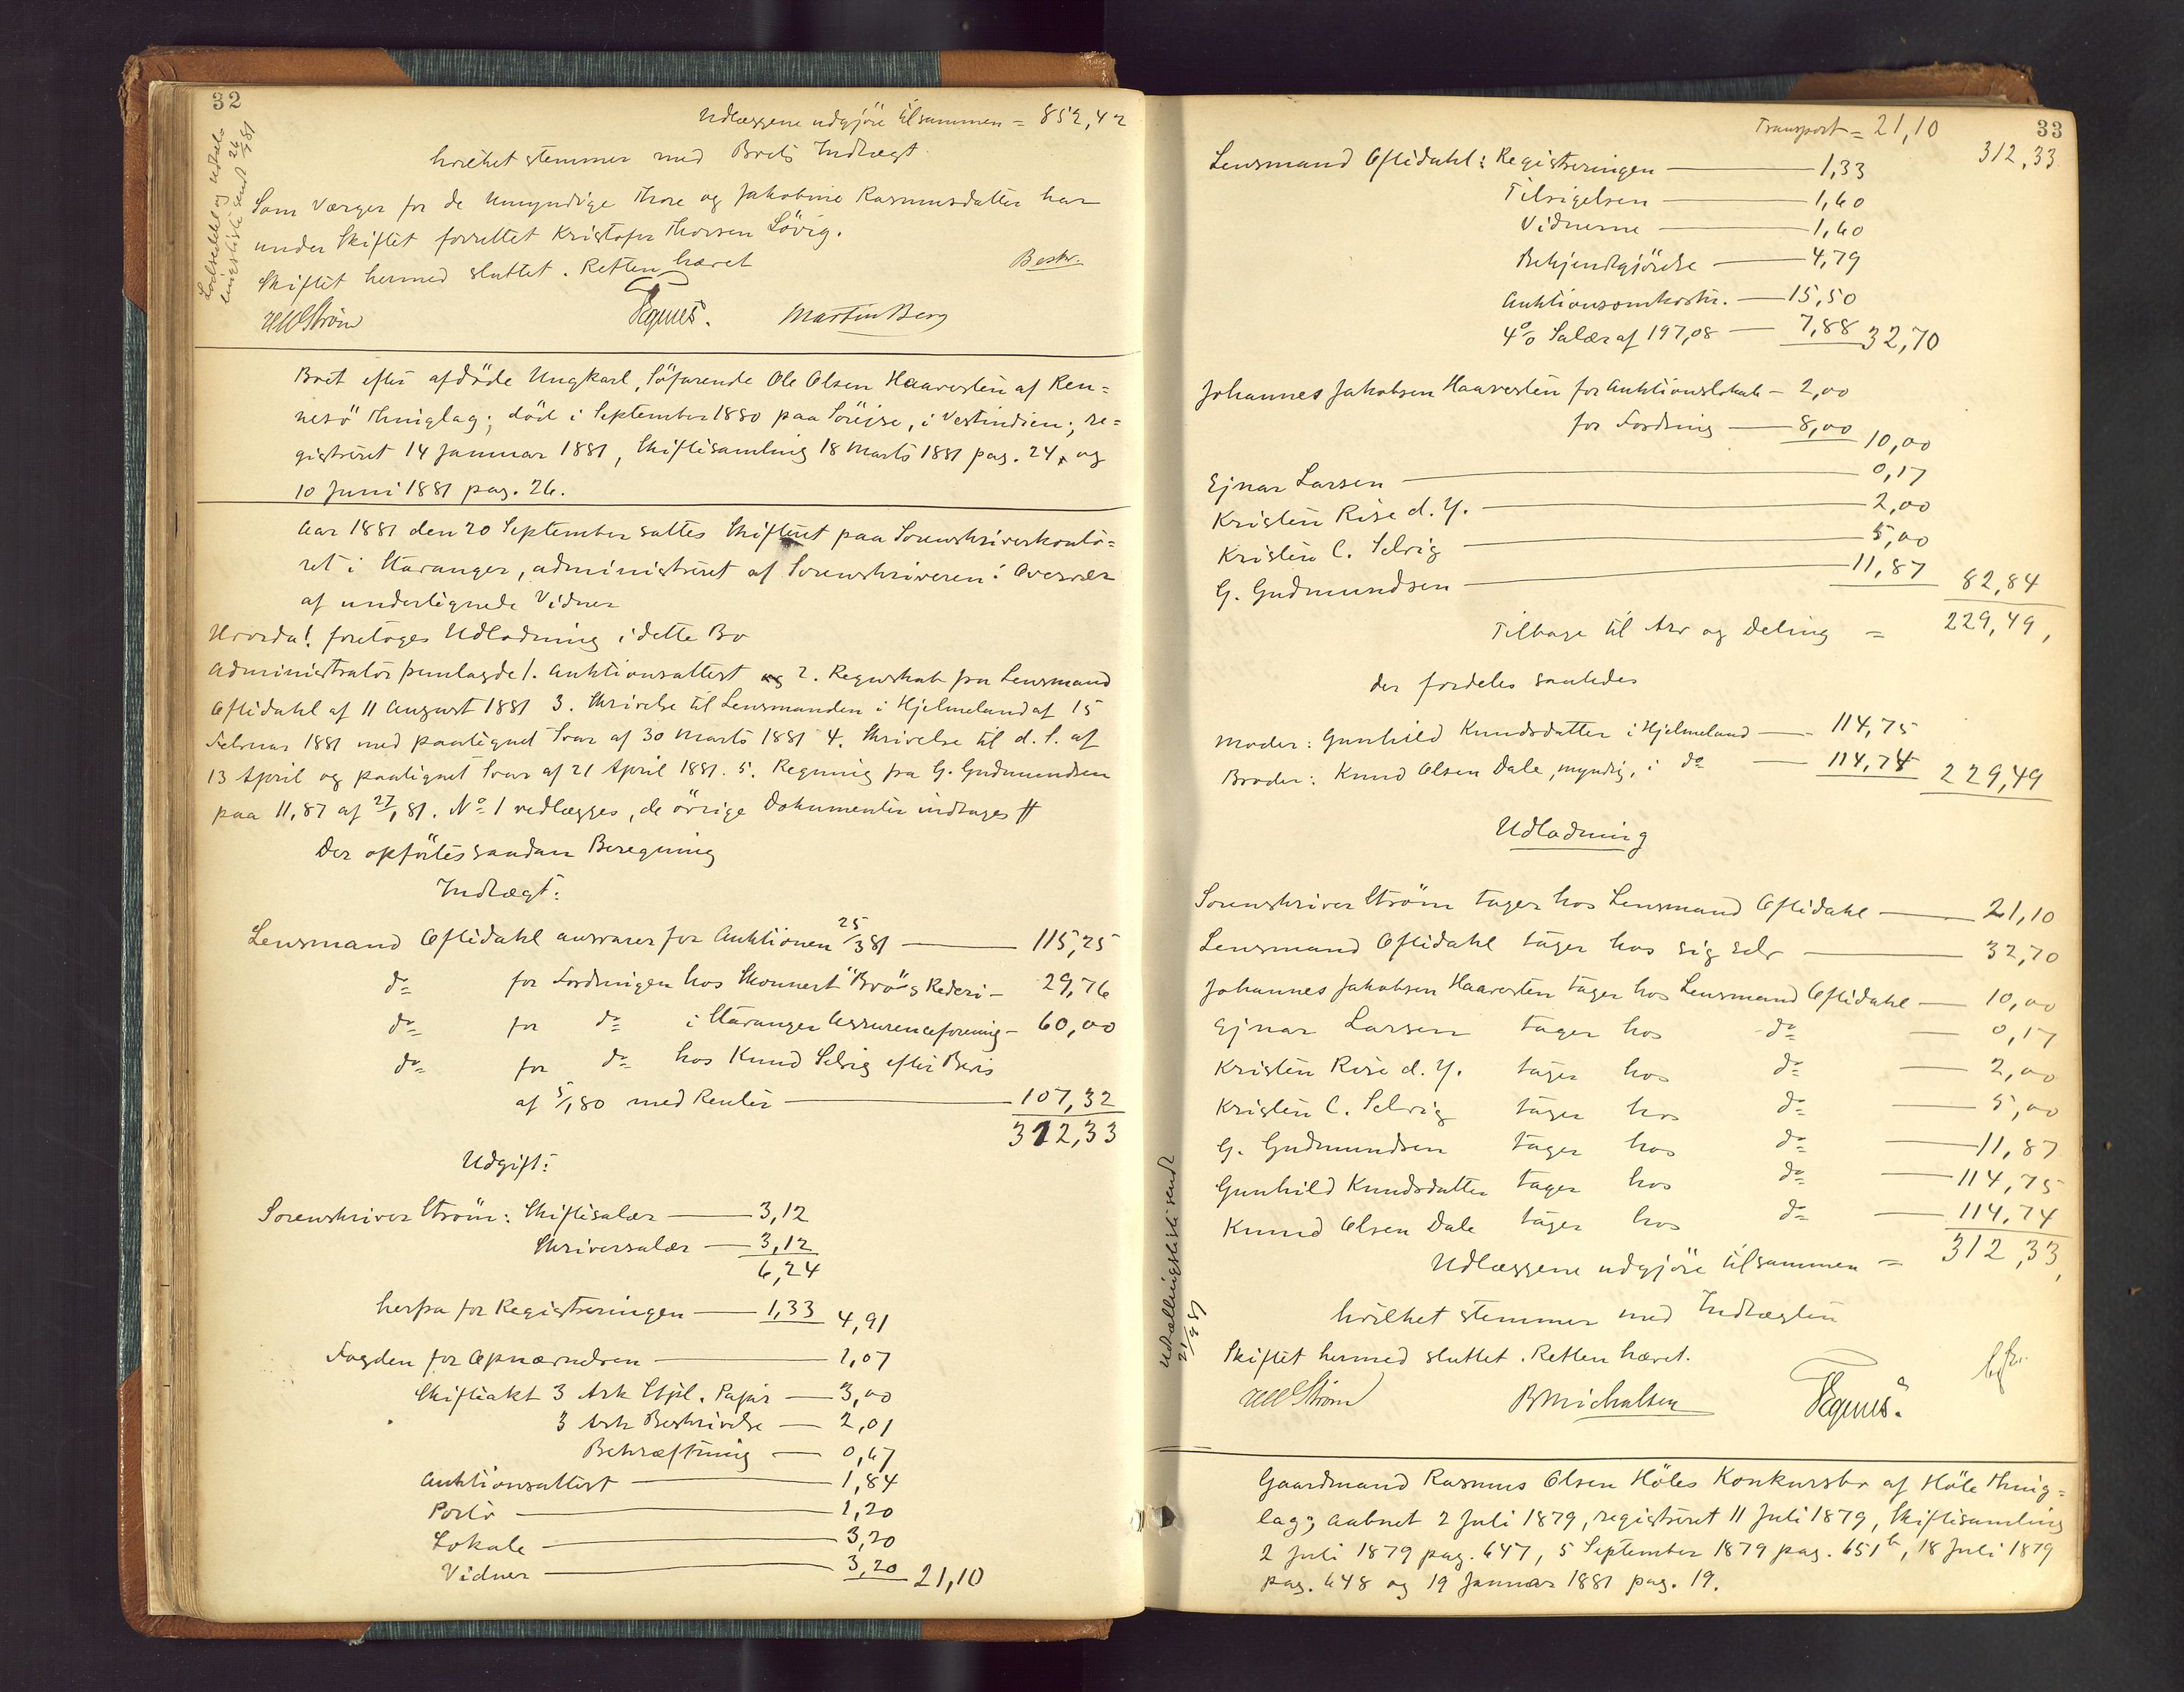 32
Udlæggene udgjøre tilsammen = 852,42
hvilket stemmer med Boets Indtægt.
Som Værger for de umyndige Thore og Jakobine Rasmusdatter har
under Skiftet forrettet Kristofer Thorsen Løvig.
Skiftet hermed sluttet. Retten hævet
Beskr.
Strøm Martin Berg
Boet efter afdøde Ungkarl, Søfarende Ole Olsen Haavesten af Ren=
nesø Thinglag; død i September 1880 paa Sørejse, i Vestindien; re=
gistreret 14 Januar 1881, Skiftesamling 18 Marts 1881 pag. 24, og
10 Juni 1881 pag. 26.
Aar 1881 den 20 September sattes Skifteret paa Sorenskriverkonto=
ret i Stavanger, administreret af Sorenskriveren i Overvær
af undertegnede Vidner
Hvorda! foretoges Udlodning i dette Bo
Administrator fremlagde 1. Auktionsattest og 2. Regnskab fra Lensmand
Oftidahl af 11 August 1881 3. Skrivelse til Lensmanden i Hjelmeland af 15
Februar 1881 med paategnet Svar af 30 Marts 1881 4. Skrivelse til d. S. af
13 April og paategnet Svar af 21 April 1881. 5. Regning fra G. Gudmundsen
paa 11,87 af 27/1 81. No 1 vedlægges, de øvrige Dokumenter indtages #
Der opførtes saadan Beregning
Indtægt:
Lensmand Oftidahl ansvarer for Auktionen 25/3 81 — 115,25
do for Fordringen hos Skonnert "Brø"s Rederi — 29,76
do for do i Stavanger Assuranceforening — 60,00
do for do hos Knud Selvig efter Bevis
af 5/1 80 med Renter — 107,32
312,33
Udgift:
Sorenskriver Strøm: Skiftesalær — 3,12
Skriversalær — 3,12
6,24
herfra for Registreringen — 1,33 4,91
Fogden for Opnævnelsen — 1,07
Skifteakt 3 Ark Stpl. Papir — 3,00
3 Ark Beskrivelse — 2,01
Bekræftning — 0,67
Auktionsattest — 1,84
Porto — 1,20
Lokale — 3,20
Vidner — 3,20 21,10
33
Transport = 21,10
312,33
Lensmand Oftidahl: Registreringen — 1,33
Tilsigelsen — 1,60
Vidnerne — 1,60
Bekjendtgjørelse — 4,79
Auktionsomkostn. — 15,50
4% Salær af 197,08 — 7,88 32,70
Johannes Jakobsen Haavesten for Auktionslokale — 2,00
for Fordring — 8,00 10,00
Ejnar Larsen — 0,17
Kristen Rise d. Y. — 2,00
Kristen C. Selvig — 5,00
G. Gudmundsen — 11,87 82,84
Tilbage til Arv og Deling = 229,49,
der fordeles saaledes
Moder: Gunhild Knudsdatter i Hjelmeland — 114,75
Broder: Knud Olsen Dale, myndig, i do — 114,74 229,49
Udlodning
Sorenskriver Strøm tager hos Lensmand Oftidahl — 21,10
Lensmand Oftidahl tager hos sig selv — 32,70
Johannes Jakobsen Haavesten tager hos Lensmand Oftidahl — 10,00
Ejnar Larsen tager hos do — 0,17
Kristen Rise d. Y. tager hos do — 2,00
Kristen C. Selvig tager hos do — 5,00
G. Gudmundsen tager hos do — 11,87
Gunhild Knudsdatter tager hos do — 114,75
Knud Olsen Dale tager hos do — 114,74
Udlæggene udgjøre tilsammen = 312,33,
hvilket stemmer med Indtægten
Skiftet hermed sluttet. Retten hævet.
Strøm B Michalsen
Udtællingsliste sendt
21/9 81
Gaardmand Rasmus Olsen Høles Konkursbo af Høle Thing=
lag; aabnet 2 Juli 1879, registreret 11 Juli 1879, Skiftesamling
2 Juli 1879 pag. 647, 5 September 1879 pag. 651b, 18 Juli 1879
pag. 648 og 19 Januar 1881 pag. 19.